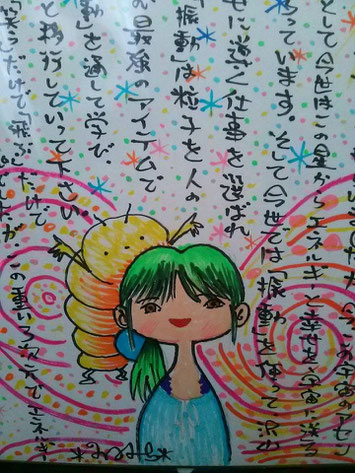 として今世はこの星からエネルギーと幸せを宇宙に送る
っています。そして今世では「振動」を使って沢山
せに導く仕事を選ばれ
「振動」は粒子を人の
の最強のアイテムで
動」を通して学び、
と移行していって下さい。
だけで「飛ぶ」だけで
したが、この重い3次元でエネルギ